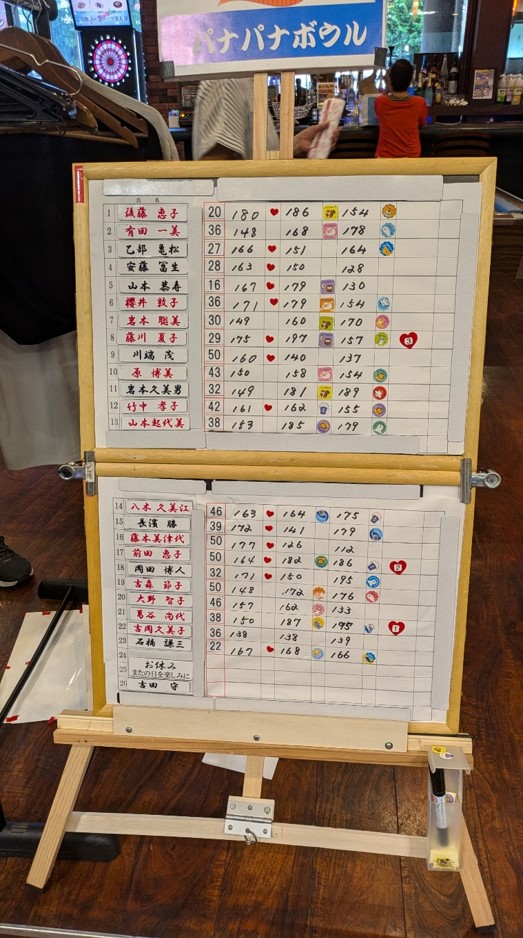 パナパナボウル
氏名
1 後藤 恵子 20 180 186 154
2 有田 一美 36 148 168 178
3 乙部 亀松 27 166 151 164
4 安藤 冨生 28 163 150 128
5 山本 恭寿 16 167 179 130
6 櫻井 敦子 36 171 179 154
7 岩本 聡美 30 149 160 170
8 藤川 夏子 29 175 197 157 3
9 川端 茂 50 160 140 137
10 原 博美 43 150 158 154
11 岩本久美男 32 149 181 189
12 竹中 孝子 42 161 162 155
13 山本起代美 38 153 185 179
14 八木 久美江 46 163 164 175
15 長濱 勝 39 172 141 179
16 藤本美津代 50 177 126 112
17 前田 恵子 50 164 182 186 2
18 岡田 博人 32 171 150 195
19 吉森 節子 50 148 172 176
20 大野 智子 46 157 162 133
21 葛谷 尚代 38 150 187 195 1
22 吉岡久美子 36 138 138 139
23 石橋 謙三 22 167 168 166
24
25 お休み
またの日を楽しみに
26 吉田 守